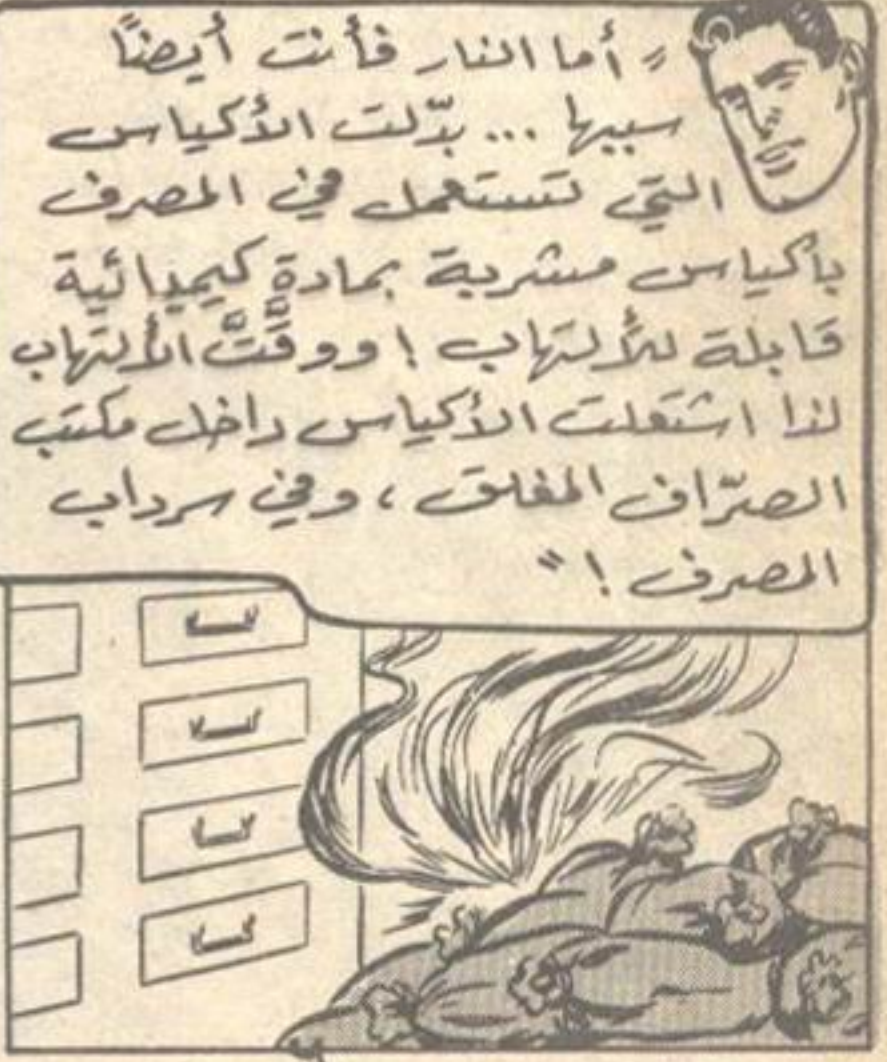 " أما النار فأنت أيضاً
سببها ... بدّلت الأكياس
التي تستعمل في المصرف
بأكياس مشربة بمادةٍ كيميائية
قابلة للألتهاب ! ووقَّتَّ الألتهاب
لذا اشتعلت الأكياس داخل مكتب
الصرّاف المغلق ، وفي سرداب
المصرف ! "